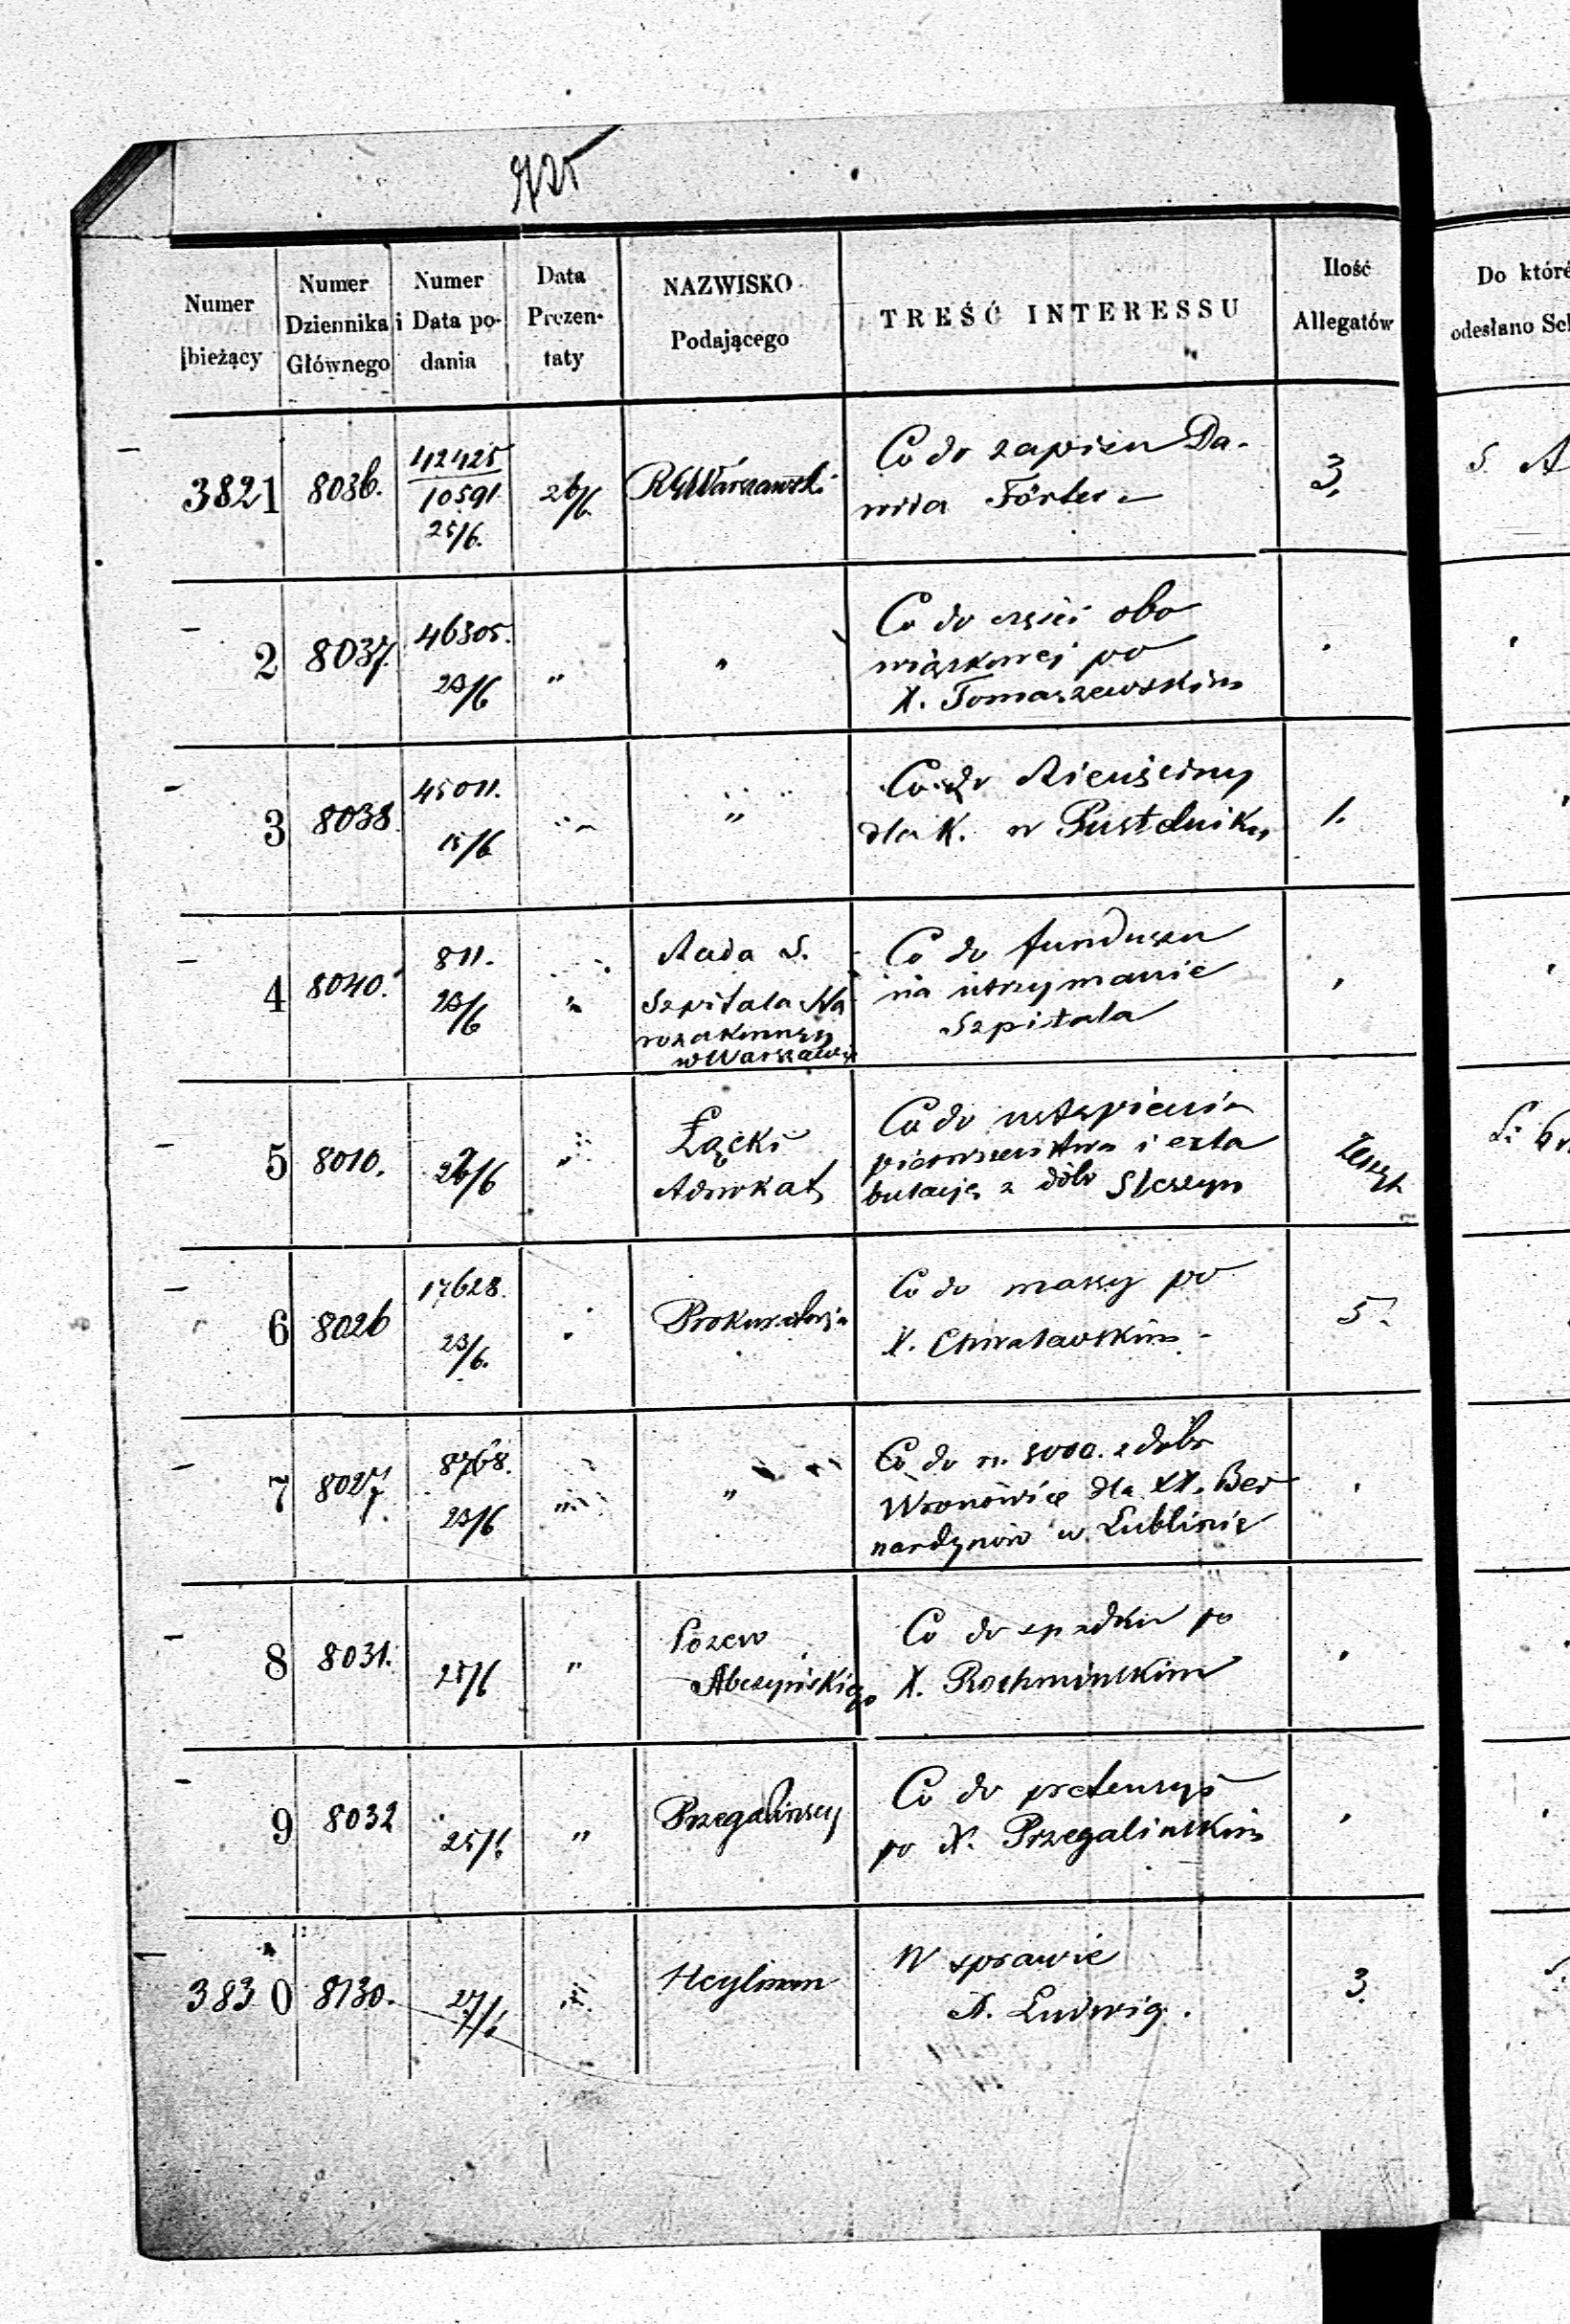 725
Numer bieżący
Numer Dziennika Głównego
Numer i Data podania
Data Prezentaty
NAZWISKO Podającego
TREŚĆ INTERESSU
Ilość Allegatów
Do któré
odesłano
3821 8036. 42425 / 10591 25/6. 26/6 RG Warszawski Co do zapisu Da-
wida Förster 3.
2 8037. 46305. 23/6 " " Co do części obo
wiązkowej po
X. Tomaszewskim
3 8038 45011. 15/6 " " Co do
dla K. w Pustelniku 1.
4 8040. 811. 23/6 " Rada S.
Szpitala Sta
rozakonnych
w Warszawie
Co do funduszu
na utrzymanie
Szpitala
5 8010. 26/6 " Łącki
Adwokat
Co do ustąpienia
pierwszeństwa i exta
bulacji z dóbr
Zeszyt
6 8026 17628. 23/6. " Prokuratorja Co do massy po
X. Chwatawskim 5.
7 8027. 8768. 23/6 " " Co do rs. 3000. z dóbr
Wronowice dla XX. Ber
nardynów w Lublinie
8 8031. 25/6 " Pozew
Co do spadku po
X.
9 8032 25/6 " Przegalińscy Co do pretensyi
po X. Przegalińskim
3830 8130. 27/6 " Heylman W sprawie
X. Ludwig. 3.